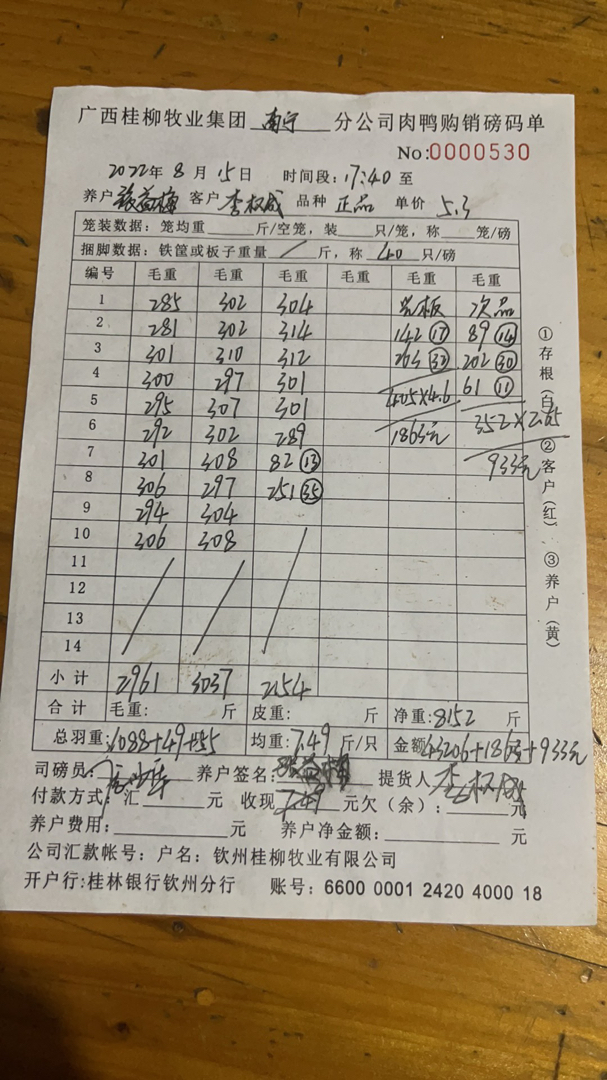 广西桂柳牧业集团 南宁 分公司肉鸭购销磅码单
No:0000530
2022年 8 月 15 日 时间段: 17:40 至
养户 张 梅 客户 李权威 品种 正品 单价 5.3
笼装数据: 笼均重 斤/空笼, 装 只/笼, 称 笼/磅
捆脚数据: 铁筐或板子重量 / 斤, 称 40 只/磅
编号 毛重 毛重 毛重 毛重 毛重 毛重
1 285 302 304 光板 次品
2 281 302 314 142 ⑰ 89 ⑭
3 301 310 312 263 ㉜ 202 ㉚
4 300 297 301 405×4.6 61 ⑪
5 295 307 301 352×2.65
6 292 302 289 1863元
7 301 308 82 ⑬ 933元
8 306 297 251 ㉟
9 294 304
10 306 308
11
12
13
14
小计 2961 3037 2154
合计 毛重: 斤 皮重: 斤 净重: 8152 斤
总羽重: 1088+49+55 均重: 7.49 斤/只 金额 43206+1863+933元
司磅员: 养户签名: 提货人 李权威
付款方式: 汇 元 收现 元欠(余): 元
养户费用: 元 养户净金额: 元
公司汇款帐号: 户名: 钦州桂柳牧业有限公司
开户行:桂林银行钦州分行 账号: 6600 0001 2420 4000 18
①存根(白) ②客户(红) ③养户(黄)